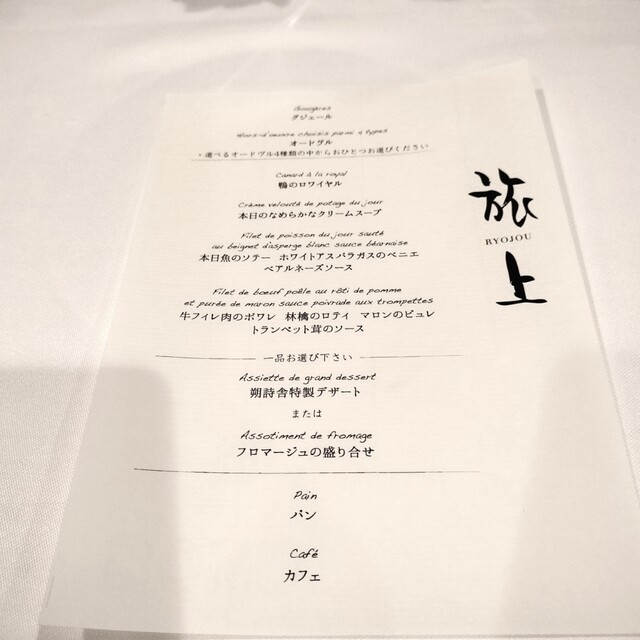 Gougères
グジェール
Hors-d'œuvre choisis parmi 4 types
オードヴル
*選べるオードヴル4種類の中からおひとつお選びください
Canard à la royal
鴨のロワイヤル
Crème velouté de potage du jour
本日のなめらかなクリームスープ
Filet de poisson du jour sauté
au beignet d'asperge blanc sauce béarnaise
本日魚のソテー ホワイトアスパラガスのベニエ
ベアルネーズソース
Filet de bœuf poêle au rôti de pomme
et purée de maron sauce poivrade aux trompettes
牛フィレ肉のポワレ 林檎のロティ マロンのピュレ
トランペット茸のソース
一品お選び下さい
Assiette de grand dessert
朔詩舎特製デザート
または
Assotiment de fromage
フロマージュの盛り合せ
Pain
パン
Café
カフェ
旅
RYOJOU
上